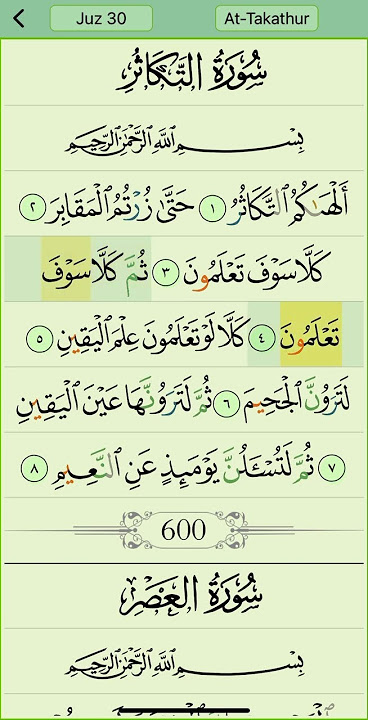 Juz 30
At-Takathur
سُورَةُ التَّكَاثُرِ
بِسْمِ ٱللَّهِ ٱلرَّحْمَٰنِ ٱلرَّحِيمِ
أَلْهَىٰكُمُ ٱلتَّكَاثُرُ ١ حَتَّىٰ زُرْتُمُ ٱلْمَقَابِرَ ٢
كَلَّا سَوْفَ تَعْلَمُونَ ٣ ثُمَّ كَلَّا سَوْفَ
تَعْلَمُونَ ٤ كَلَّا لَوْ تَعْلَمُونَ عِلْمَ ٱلْيَقِينِ ٥
لَتَرَوُنَّ ٱلْجَحِيمَ ٦ ثُمَّ لَتَرَوُنَّهَا عَيْنَ ٱلْيَقِينِ
٧ ثُمَّ لَتُسْـَٔلُنَّ يَوْمَئِذٍ عَنِ ٱلنَّعِيمِ ٨
600
سُورَةُ العَصْرِ
بِسْمِ ٱللَّهِ ٱلرَّحْمَٰنِ ٱلرَّحِيمِ